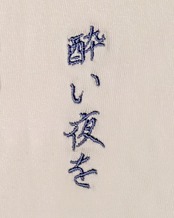 酔い夜を